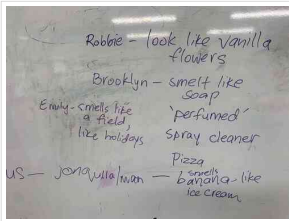 Robbie - look like vanilla
flowers
Brooklyn - smelt like
soap
Emily - smells like
a field,
like holidays
'perfumed'
spray cleaner
Pizza
us - 
smells
banana - like
ice cream